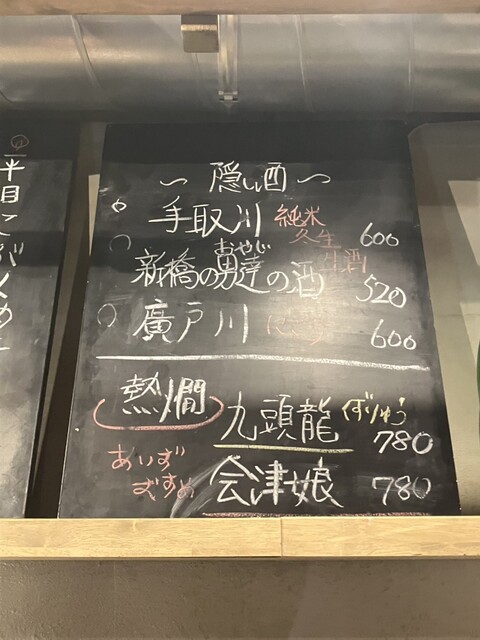 〜 隠し酒 〜
手取川 純米 冬生 600
新橋の男達の酒 生酒 520
おやじ
廣戸川 600
熱燗
九頭龍 ずりゅう 780
あいず むすめ
会津娘 780